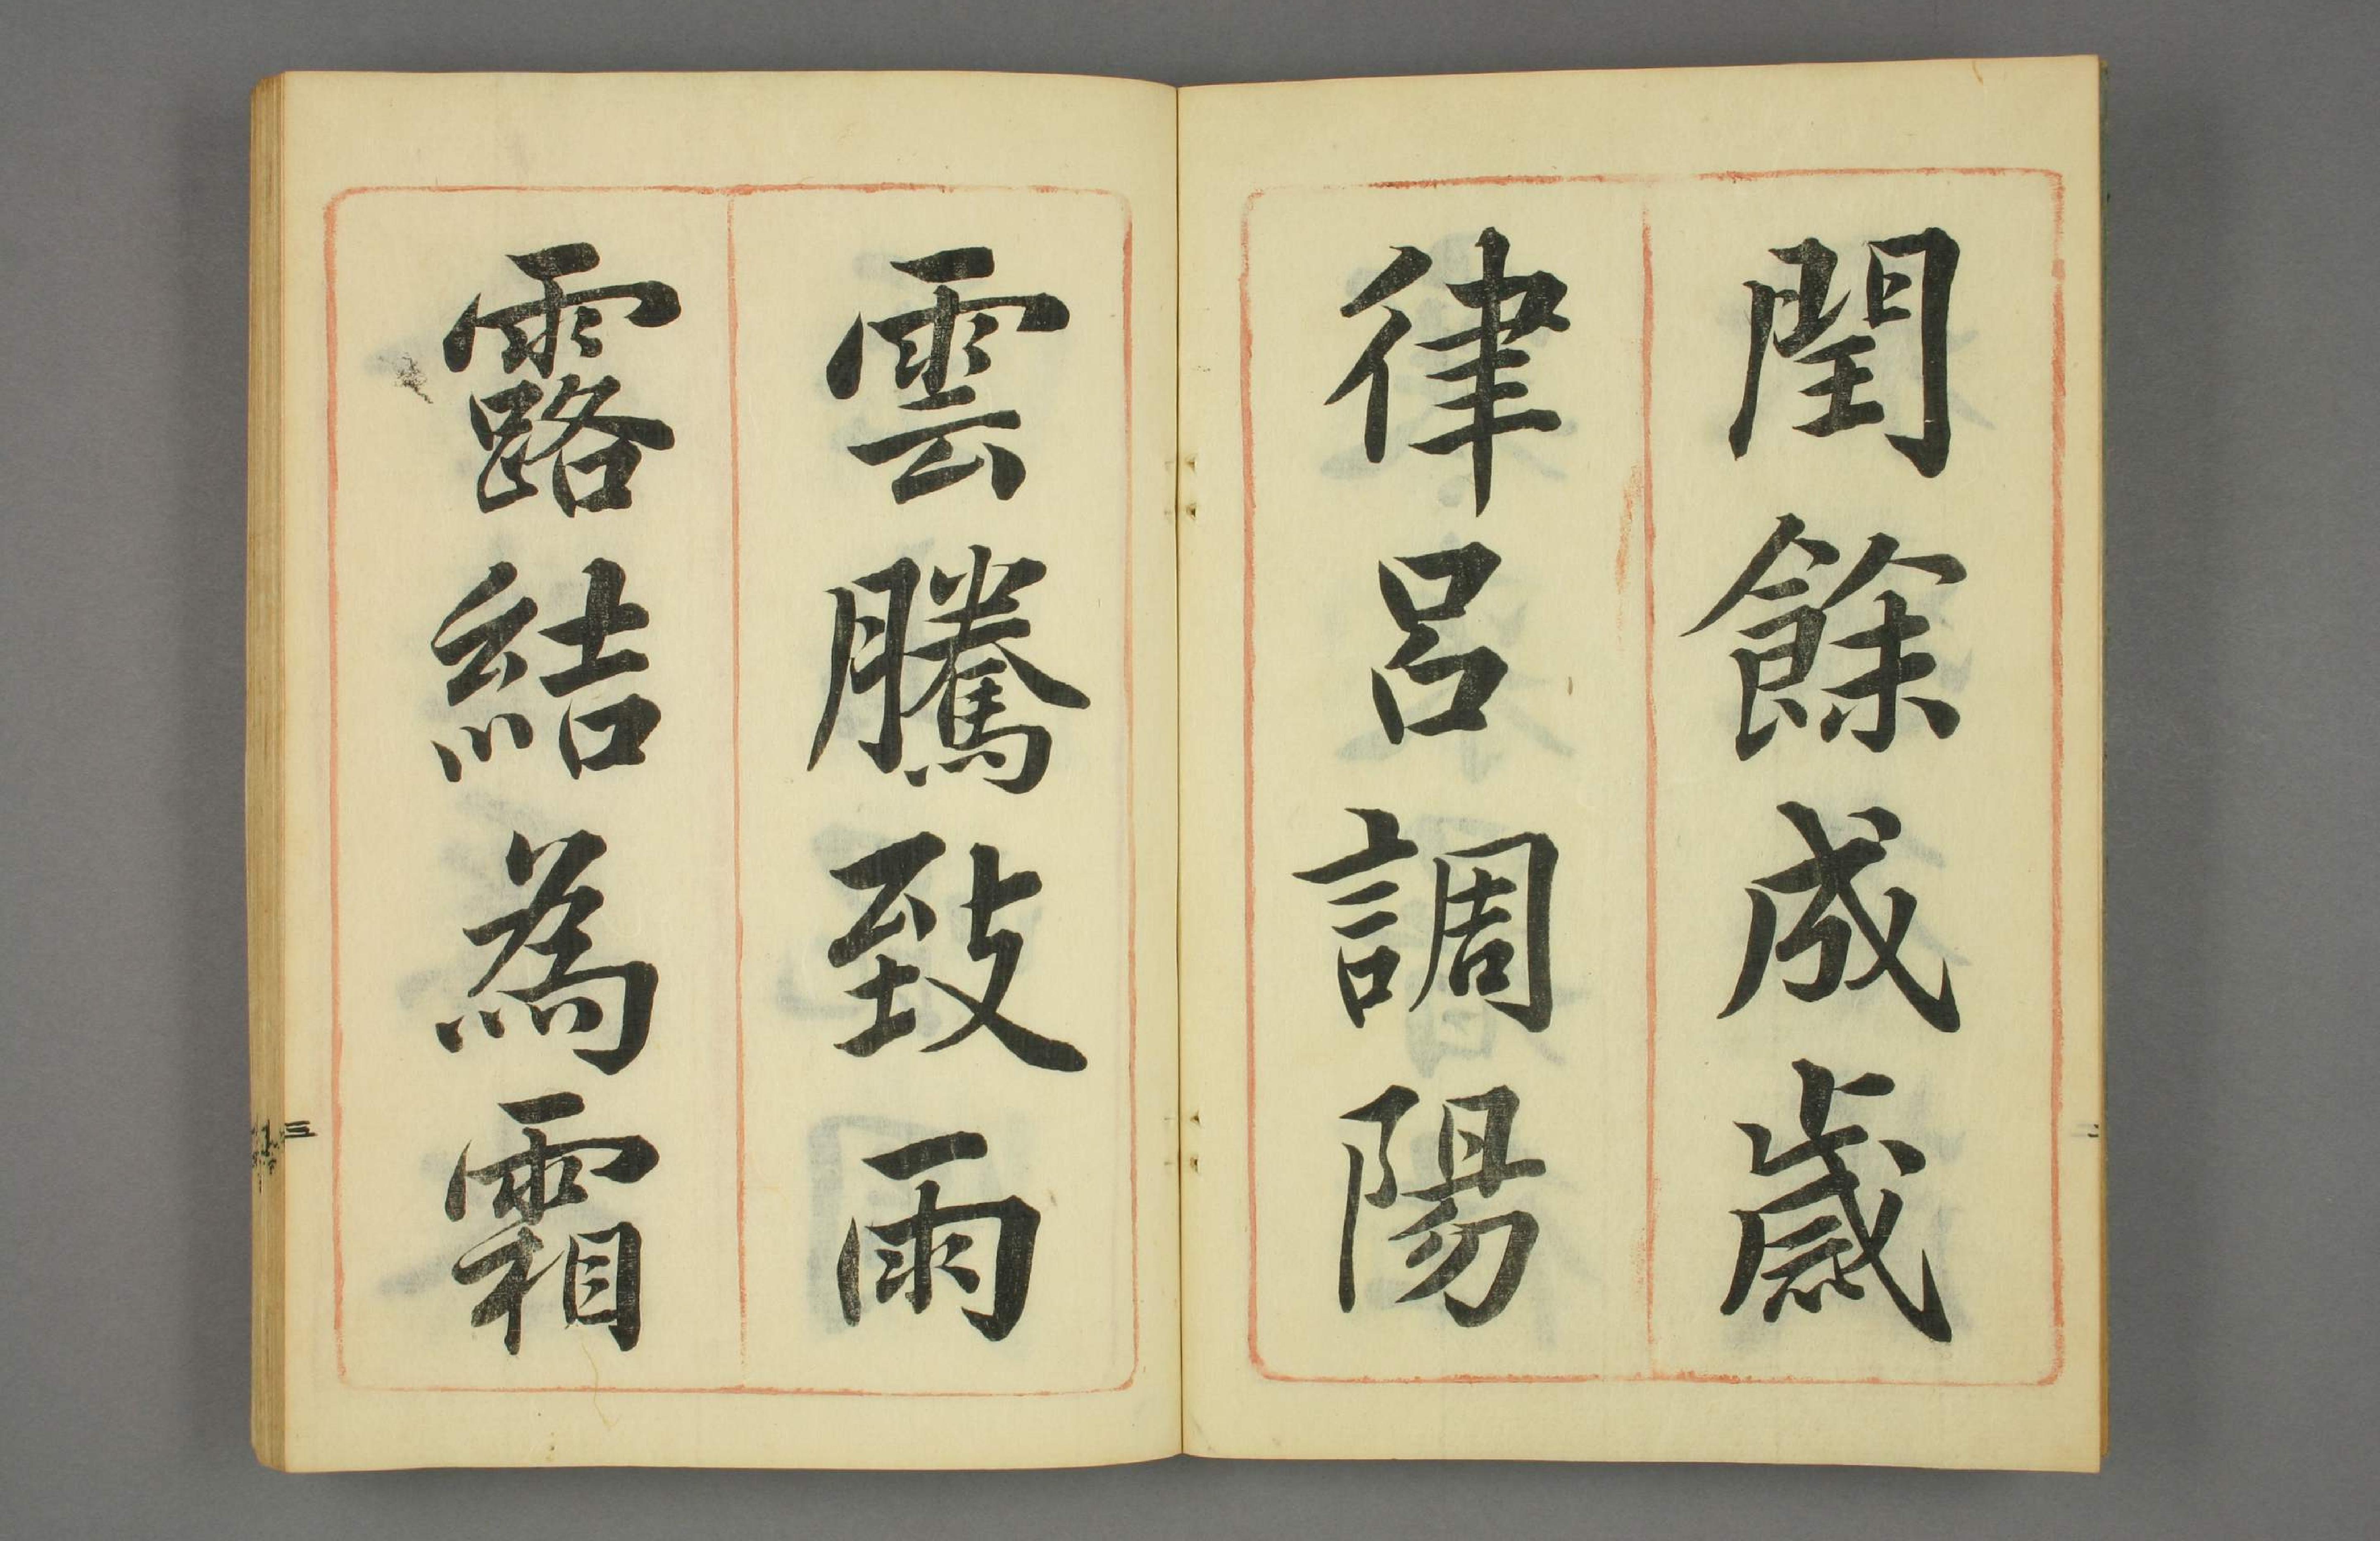 閏餘成歲
律呂調陽
雲騰致雨
露結為霜
三